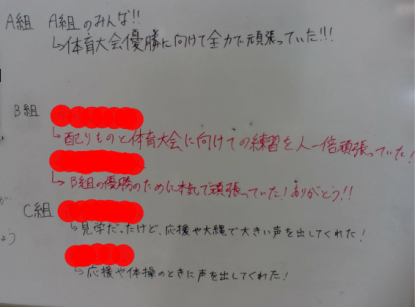 A組 A組のみんな!!
↳体育大会優勝に向けて全力で頑張っていた!!!
B組
↳配りものと体育大会に向けての練習を人一倍頑張っていた!
↳B組の優勝のために本気で頑張っていた!ありがとう!!
C組
↳見学だったけど、応援や大縄で大きい声を出してくれた!
↳応援や体操のときに声を出してくれた!